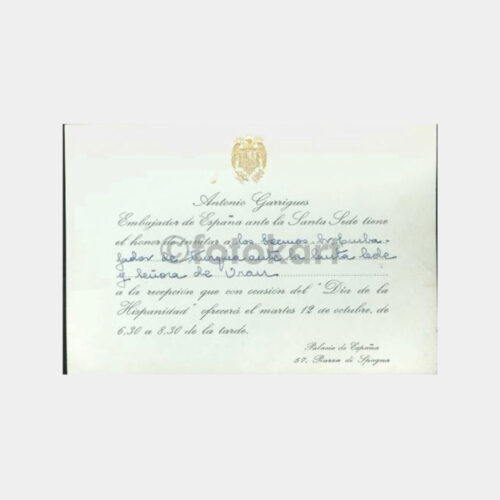 Antonio Garrigues
Embajador de España ante la Santa Sede tiene
el honor de invitar a los Excmos. Sres. Emba-
jador de Turquía ante la Santa Sede
y señora de
a la recepción que con ocasión del "Día de la
Hispanidad" ofrecerá el martes 12 de octubre, de
6,30 a 8,30 de la tarde.
Palacio de España
57, Piazza di Spagna
©fotokart